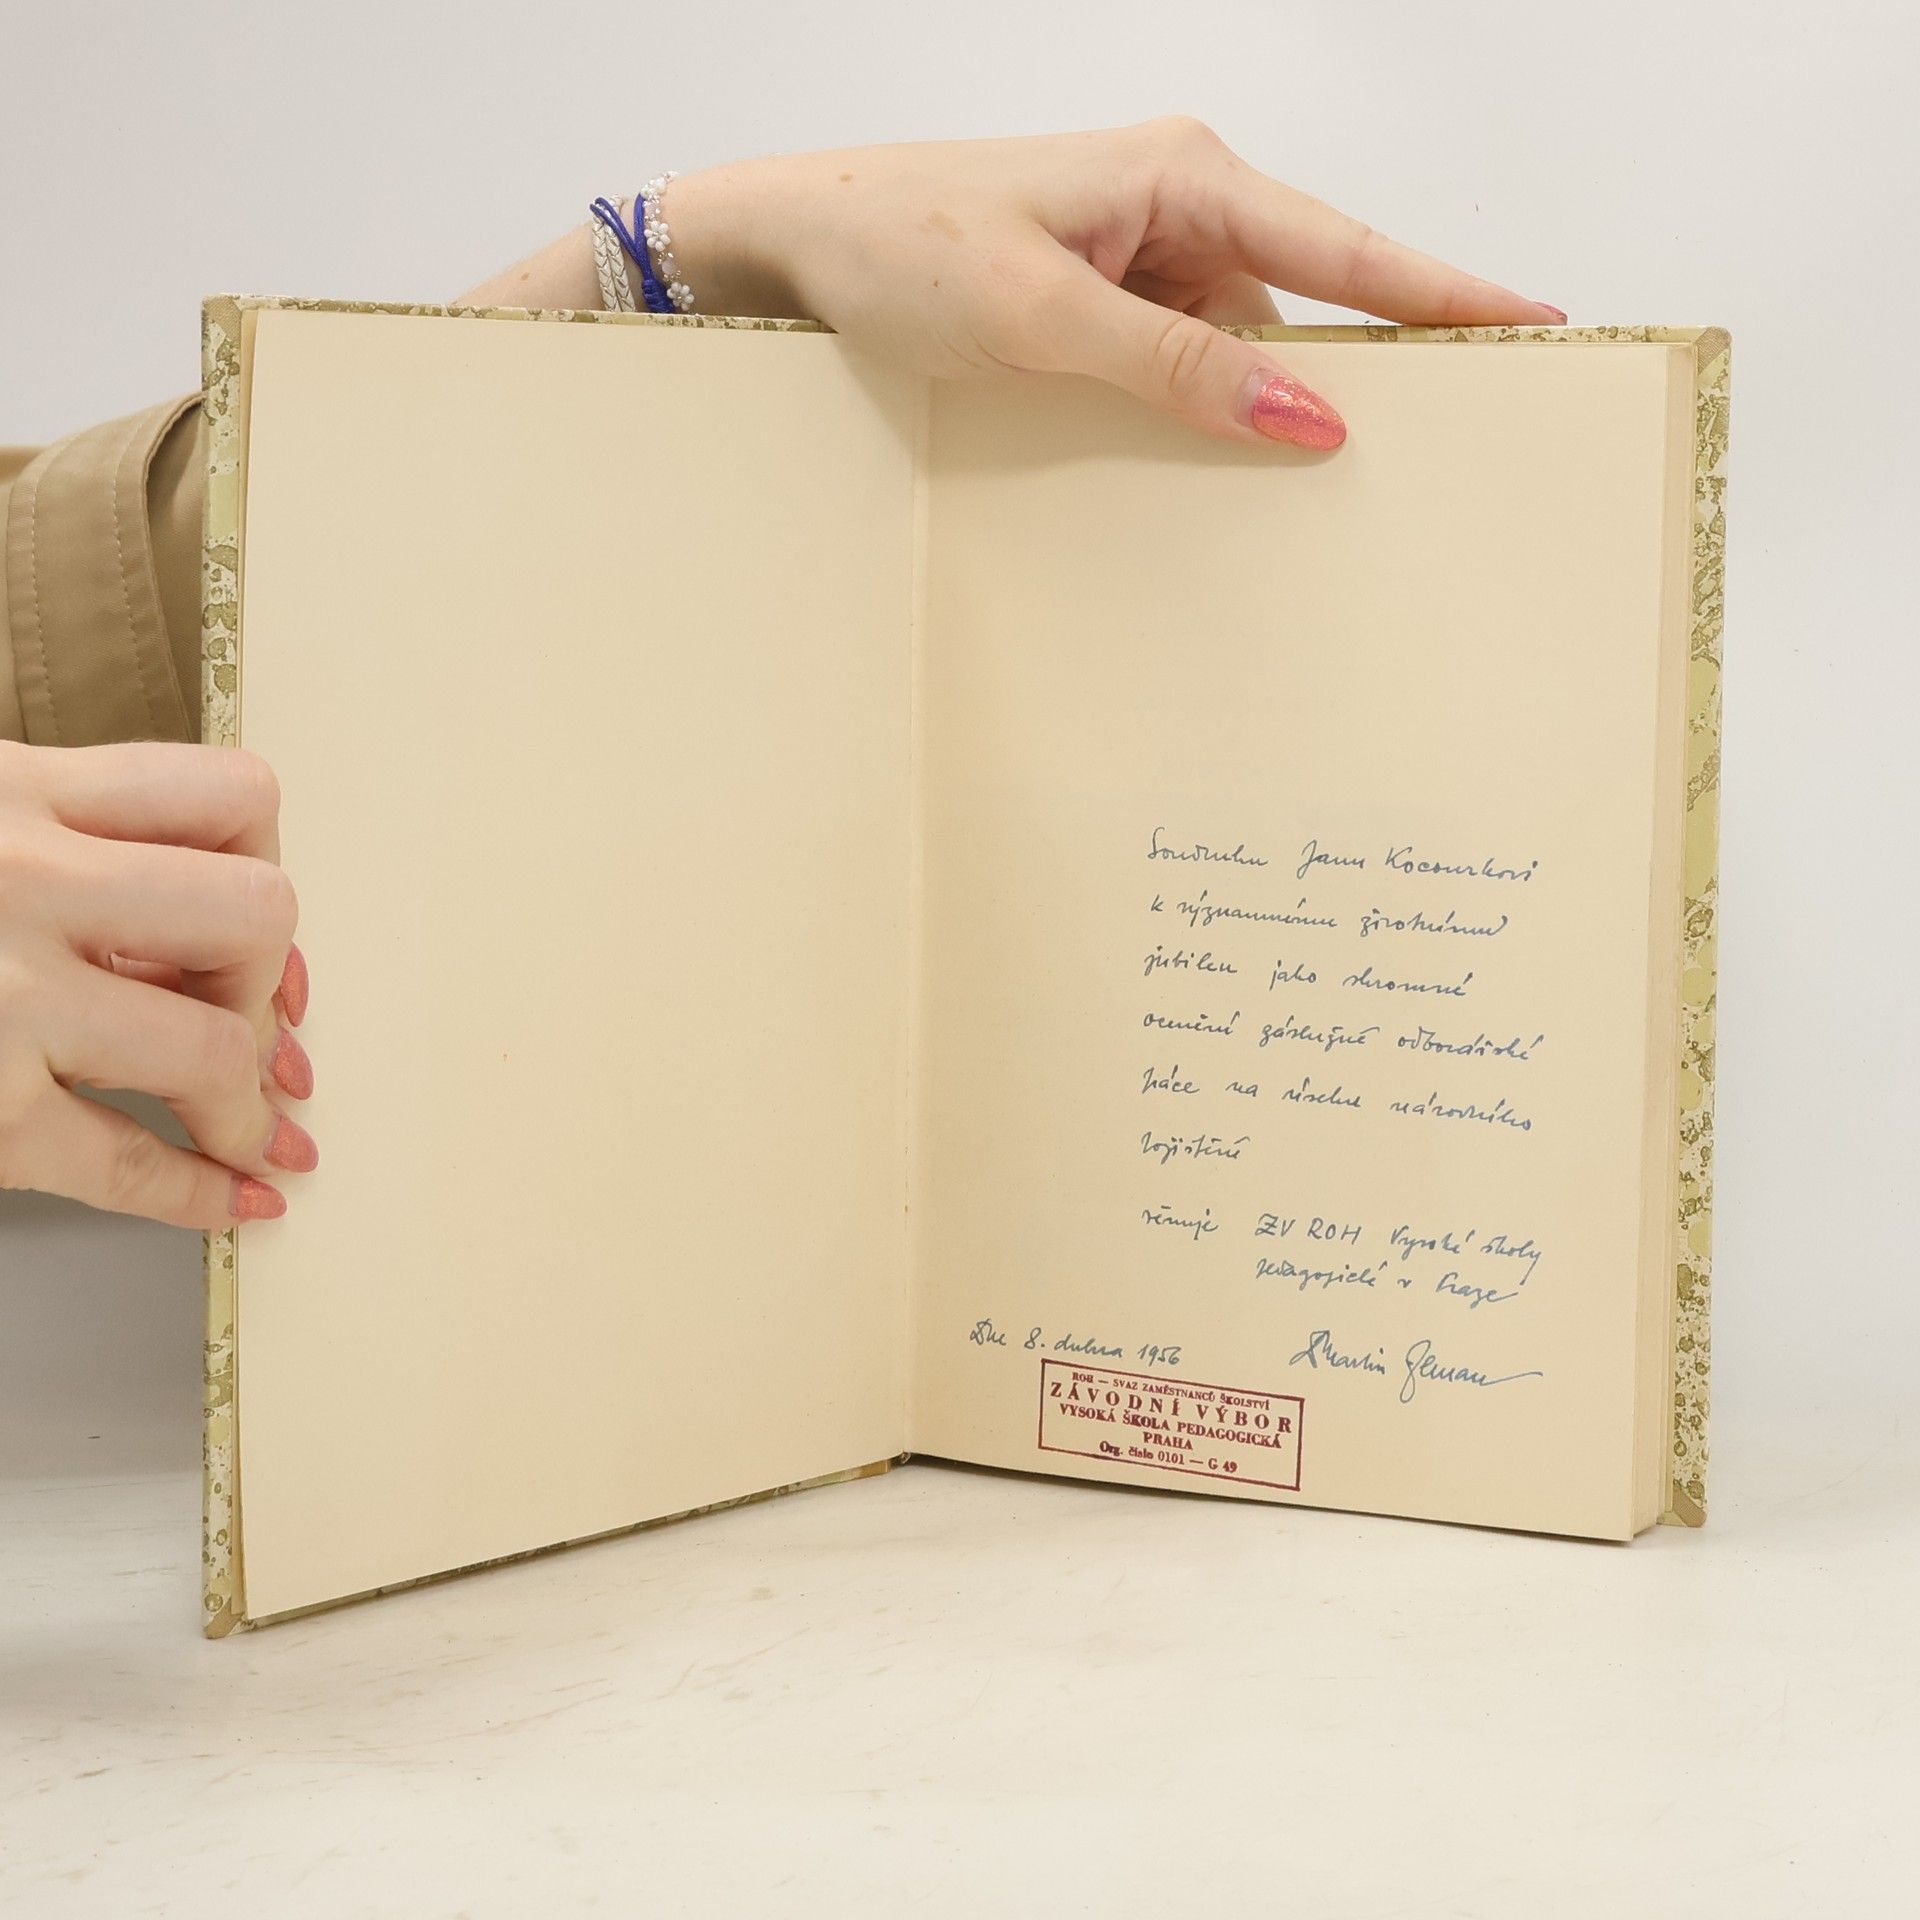 Soudruhu Janu Kocourkovi
k významnému životnímu
jubileu jako skromné
ocenění záslužné odborářské
práce na úseku národního
pojištění
věnuje ZV ROH Vysoké školy
pedagogické v Praze
Dne 8. dubna 1956 Martin
ROH — SVAZ ZAMĚSTNANCŮ ŠKOLSTVÍ
ZÁVODNÍ VÝBOR
VYSOKÁ ŠKOLA PEDAGOGICKÁ
PRAHA
Org. číslo 0101 — G 49